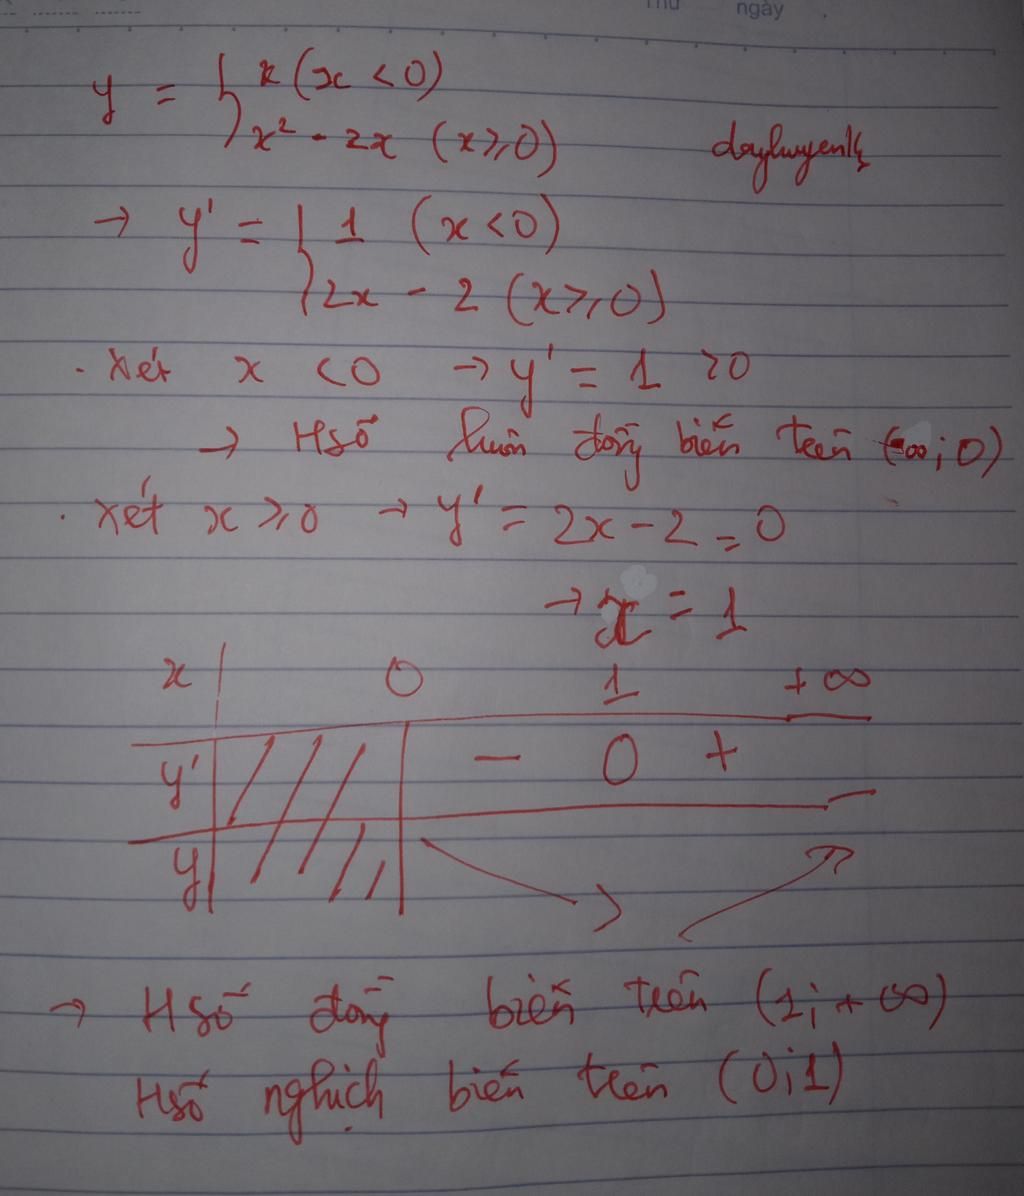 Thứ ngày
y = { x (x < 0)
x² - 2x (x ≥ 0)
→ y' = { 1 (x < 0)
2x - 2 (x ≥ 0)
. Xét x < 0 → y' = 1 > 0
→ Hsố luôn đồng biến trên (-∞; 0)
. Xét x ≥ 0 → y' = 2x - 2 = 0
→ x = 1
x 0 1 + ∞
y' - 0 +
y
→ Hsố đồng biến trên (1; + ∞)
Hsố nghịch biến trên (0; 1)